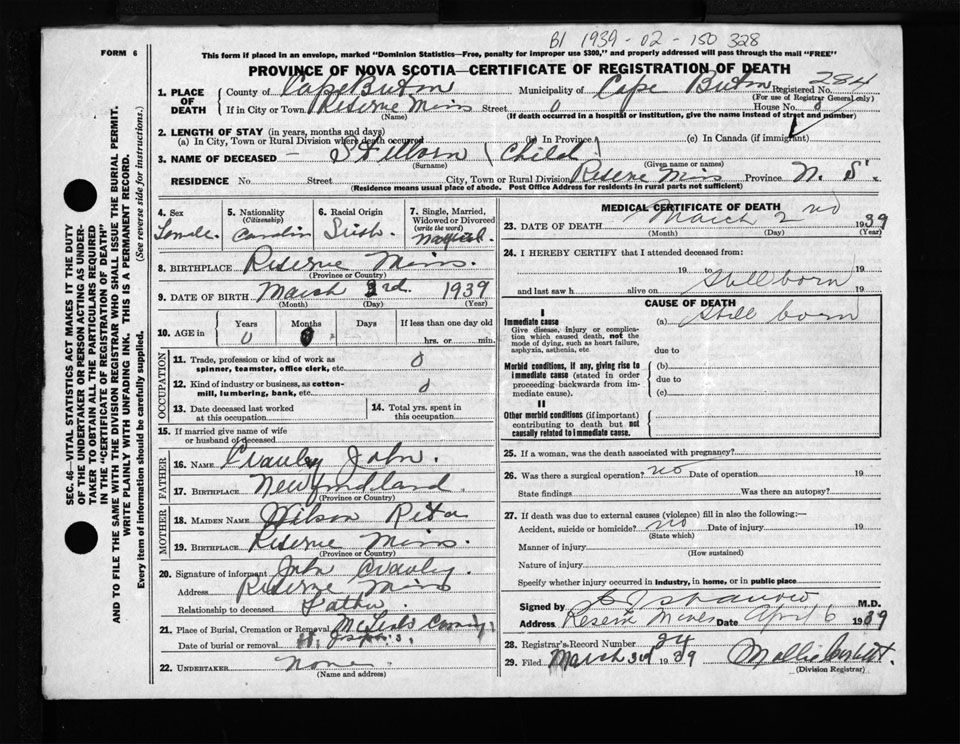 BI 1939-02-150328
FORM 6
This form if placed in an envelope, marked "Dominion Statistics—Free, penalty for improper use $300," and properly addressed will pass through the mail "FREE"
PROVINCE OF NOVA SCOTIA—CERTIFICATE OF REGISTRATION OF DEATH
SEC. 46—VITAL STATISTICS ACT MAKES IT THE DUTY
OF THE UNDERTAKER OR PERSON ACTING AS UNDER-
TAKER TO OBTAIN ALL THE PARTICULARS REQUIRED
IN THE "CERTIFICATE OF REGISTRATION OF DEATH"
AND TO FILE THE SAME WITH THE DIVISION REGISTRAR WHO SHALL ISSUE THE BURIAL PERMIT.
WRITE PLAINLY WITH UNFADING INK. THIS IS A PERMANENT RECORD.
Every item of information should be carefully supplied. (See reverse side for instructions.)
1. PLACE OF DEATH
County of Cape Breton Municipality of Cape Breton Registered No. 284
(For use of Registrar General only)
If in City or Town Reserve Mines Street 0 House No. 0
(Name) (If death occurred in a hospital or institution, give the name instead of street and number)
2. LENGTH OF STAY (in years, months and days)
(a) In City, Town or Rural Division where death occurred (b) In Province (c) In Canada (if immigrant)
3. NAME OF DECEASED — Stillborn (Child)
(Surname) (Given name or names)
RESIDENCE No. Street City, Town or Rural Division Reserve Mines Province N. S.
(Residence means usual place of abode. Post Office Address for residents in rural parts not sufficient)
4. Sex 5. Nationality 6. Racial Origin 7. Single, Married, Widowed or Divorced
(Citizenship) (write the word)
Irish
8. BIRTHPLACE Reserve Mines.
(Province or Country)
9. DATE OF BIRTH March 2rd. 1939
(Month) (Day) (Year)
10. AGE in Years Months Days If less than one day old
0 0 hrs. or min.
OCCUPATION
11. Trade, profession or kind of work as
spinner, teamster, office clerk, etc. 0
12. Kind of industry or business, as cotton-
mill, lumbering, bank, etc. 0
13. Date deceased last worked at this occupation 14. Total yrs. spent in this occupation
15. If married give name of wife
or husband of deceased
FATHER
16. NAME Crawley John.
17. BIRTHPLACE Newfoundland
(Province or Country)
MOTHER
18. MAIDEN NAME Wilson Rita
19. BIRTHPLACE Reserve Mines.
(Province or Country)
20. Signature of informant John Crawley.
Address Reserve Mines
Relationship to deceased Father.
21. Place of Burial, Cremation or Removal
Date of burial or removal St. Joseph's
22. UNDERTAKER None
(Name and address)
MEDICAL CERTIFICATE OF DEATH
23. DATE OF DEATH March 2nd 1939
(Month) (Day) (Year)
24. I HEREBY CERTIFY that I attended deceased from:
19 to 19
and last saw h alive on Stillborn 19
CAUSE OF DEATH
I
Immediate cause (a) Still born
Give disease, injury or complica-
tion which caused death, not the
mode of dying, such as heart failure,
asphyxia, asthenia, etc. due to
Morbid conditions, if any, giving rise to (b)
immediate cause (stated in order due to
proceeding backwards from im-
mediate cause). (c)
II
Other morbid conditions (if important)
contributing to death but not
causally related to immediate cause.
25. If a woman, was the death associated with pregnancy?
26. Was there a surgical operation? no Date of operation 19
State findings Was there an autopsy?
27. If death was due to external causes (violence) fill in also the following:—
Accident, suicide or homicide? no Date of injury 19
(State which)
Manner of injury
(How sustained)
Nature of injury
Specify whether injury occurred in industry, in home, or in public place
Signed by M.D.
Address Reserve Mines Date April 6 1939
28. Registrar's Record Number 24
29. Filed March 3rd 1939 Mollie
(Division Registrar)